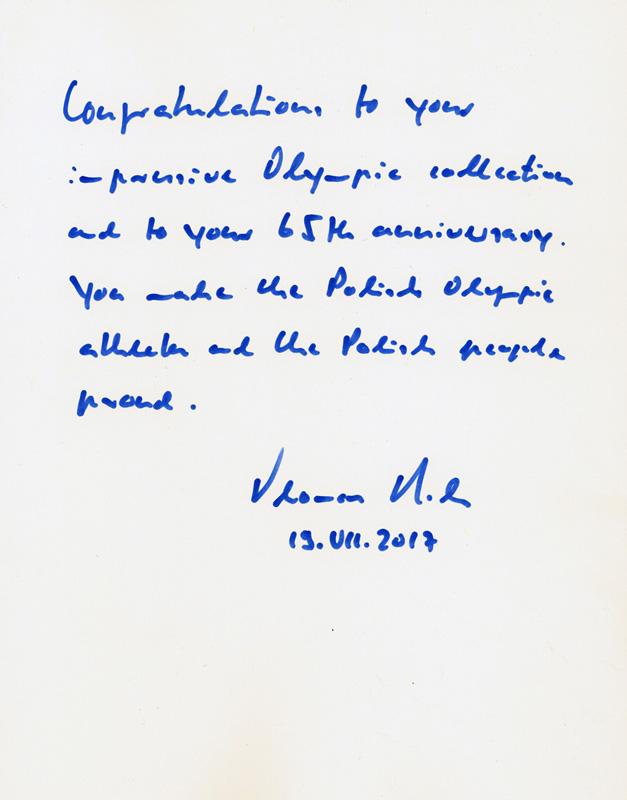 Congratulations to your
impressive Olympic collection
and to your 65th anniversary.
You make the Polish Olympic
athletes and the Polish people
proud.
Thomas
19.VII.2017